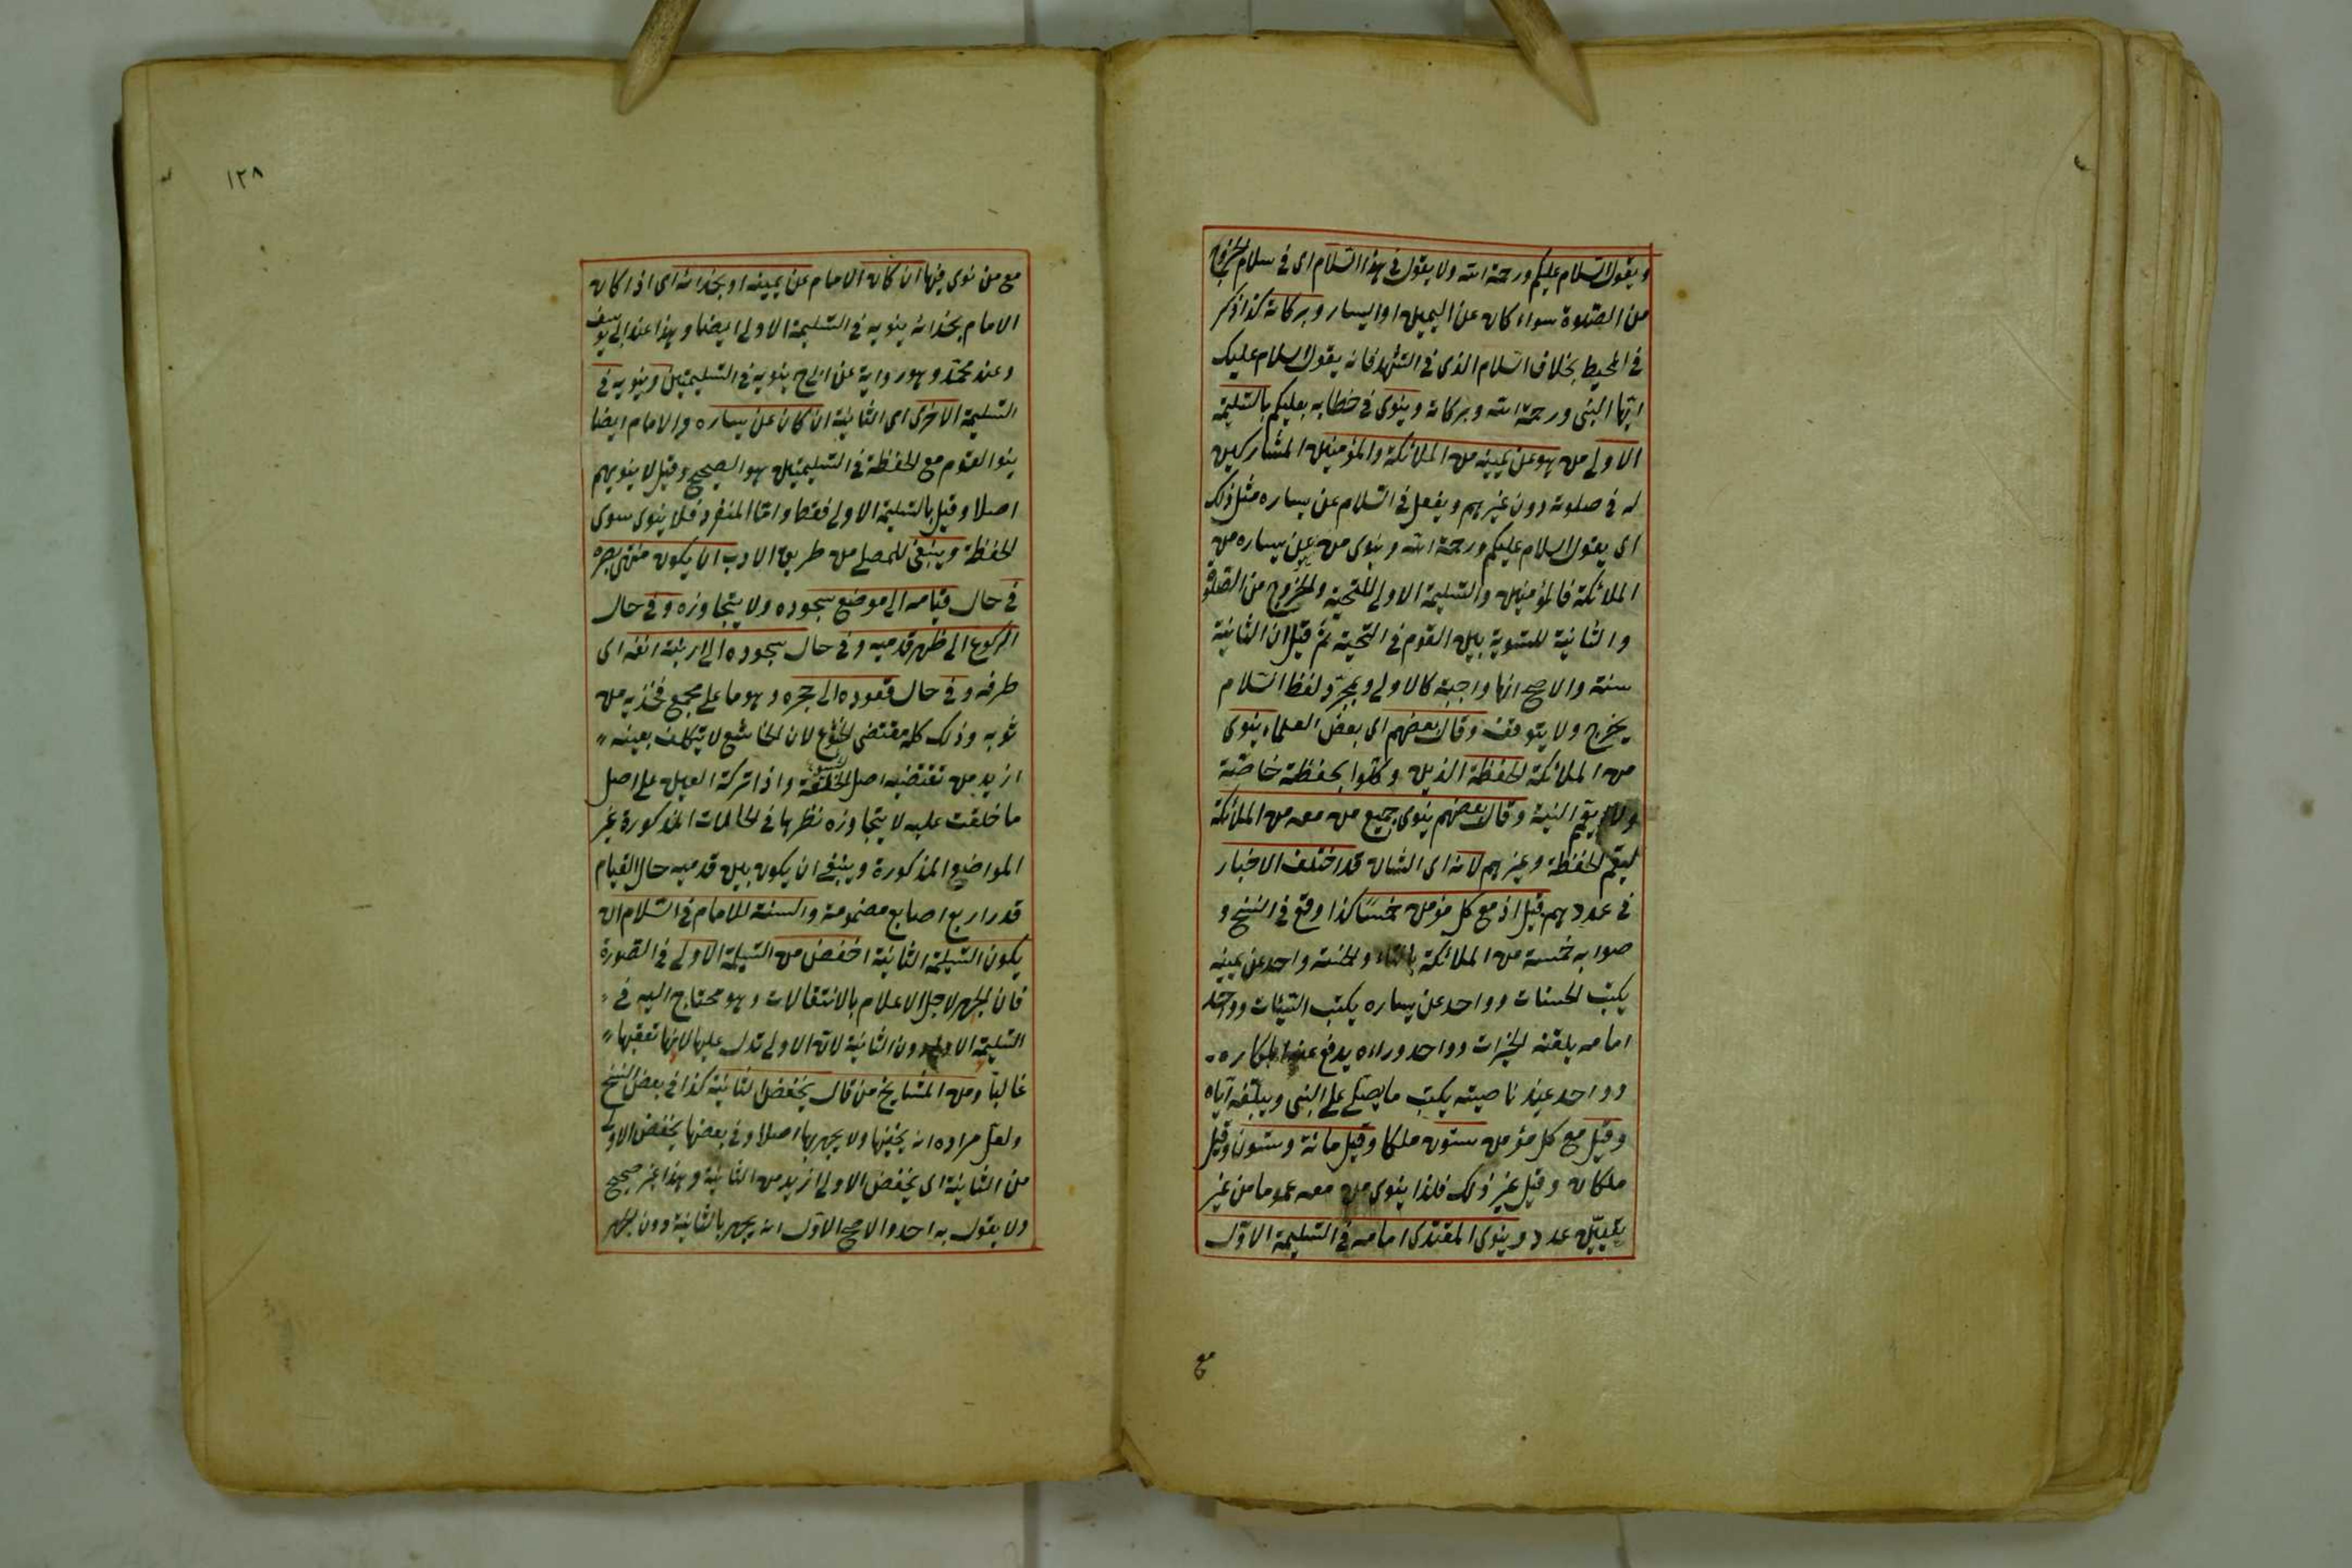 ويقول السلام عليكم ورحمة الله ولا يقول في هذا السلام اى في سلام الخروج
من الصلوة سواء كان عن اليمين او اليسار وبركاته كذا ذكر
في المحيط بخلاف السلام الذى في التشهد فانه يقول السلام عليك
ايها النبى ورحمة الله وبركاته وينوى في خطابه بعليكم بالتسليمة
الاولى من هو عن يمينه من الملائكة والمؤمنين المشاركين
له في صلوته دون غيرهم ويفعل في السلام عن يساره مثل ذلك
اى يقول السلام عليكم ورحمة الله وينوى من عن يساره من
الملائكة فالمؤمنين والتسليمة الاولى للتحية والخروج من الصلوة
والثانية للتسوية بين القوم في التحية ثم قيل ان الثانية
سنة والاصح انها واجبة كالاولى وبمجرد لفظ السلام
يخرج ولا يتوقف وقال بعضهم اى بعض العلماء ينوى
من الملائكة الحفظة الذين وكلوا بحفظه خاصة
ولا يعمم النية وقال بعضهم ينوى جميع من معه من الملائكة
ليعم الحفظة وغيرهم لانه اى الشان قد اختلف الاخبار
في عددهم قيل اذ مع كل مؤمن خمسا كذا وقع في النسخ و
صوابه خمسة من الملائكة بالتاء والخمسة واحد عن يمينه
يكتب الحسنات وواحد عن يساره يكتب السيئات وواحد
امامه يلقنه الخيرات وواحد وراءه يدفع عنه المكاره
وواحد عند ناصيته يكتب ما يصلى على النبى ويبلغه اياه
وقيل مع كل مؤمن ستون ملكا وقيل مائة وستون وقيل
ملكان وقيل غير ذلك فلذا ينوى من معه عموما من غير
تعيين عدد وينوى المقتدى امامه في التسليمة الاول
مع
١٢٨
مع من نوى فيها ان كان الامام عن يمينه او بحذائه اى اذا كان
الامام بحذائه ينويه في التسليمة الاولى ايضا وهذا عند ابى يوسف
وعند محمد وهو رواية عن ابى ح ينويه في التسليمتين وينويه في
التسليمة الاخرى اى الثانية ان كان عن يساره والامام ايضا
ينو القوم مع الحفظة في التسليمتين هو الصحيح وقيل لا ينويهم
اصلا وقيل بالتسليمة الاولى فقط واما المنفرد فلا ينوى سوى
الحفظة وينبغى للمصلى من طريق الادب ان يكون منتهى بصره
في حال قيامه الى موضع سجوده ولا يتجاوزه وفى حال
الركوع الى ظهر قدميه وفى حال سجوده الى ارنبة انفه اى
طرفه وفى حال قعوده الى حجره وهو ما على مجمع فخذيه من
ثوبه وذلك كله مقتضى الخشوع لان الخاشع لا يتكلف بعينه
ازيد من تقتضيه اصل الخلقة واذا تركت العين على اصل
ما خلقت عليه لا يتجاوزه نظرها في الحالات المذكورة غير
المواضع المذكورة وينبغى ان يكون بين قدميه حال القيام
قدر اربع اصابع مضمومة والسنة للامام في السلام ان
يكون التسليمة الثانية اخفض من التسليمة الاولى في الصورة
فان الجهر لاجل الاعلام بالانتقالات وهو محتاج اليه في
التسليمة الاولى دون الثانية لان الاولى تدل عليها لانها تعقبها
غالبا ومن المشايخ من قال يخفض الثانية كذا في بعض النسخ
ولعل مراده انه يخفيها ولا يجهر بها اصلا وفى بعضها يخفض الاولى
من الثانية اى يخفض الاولى ازيد من الثانية وهذا غير صحيح
ولا يقول به احد والاصح الاول انه يجهر بالثانية دون الجهر